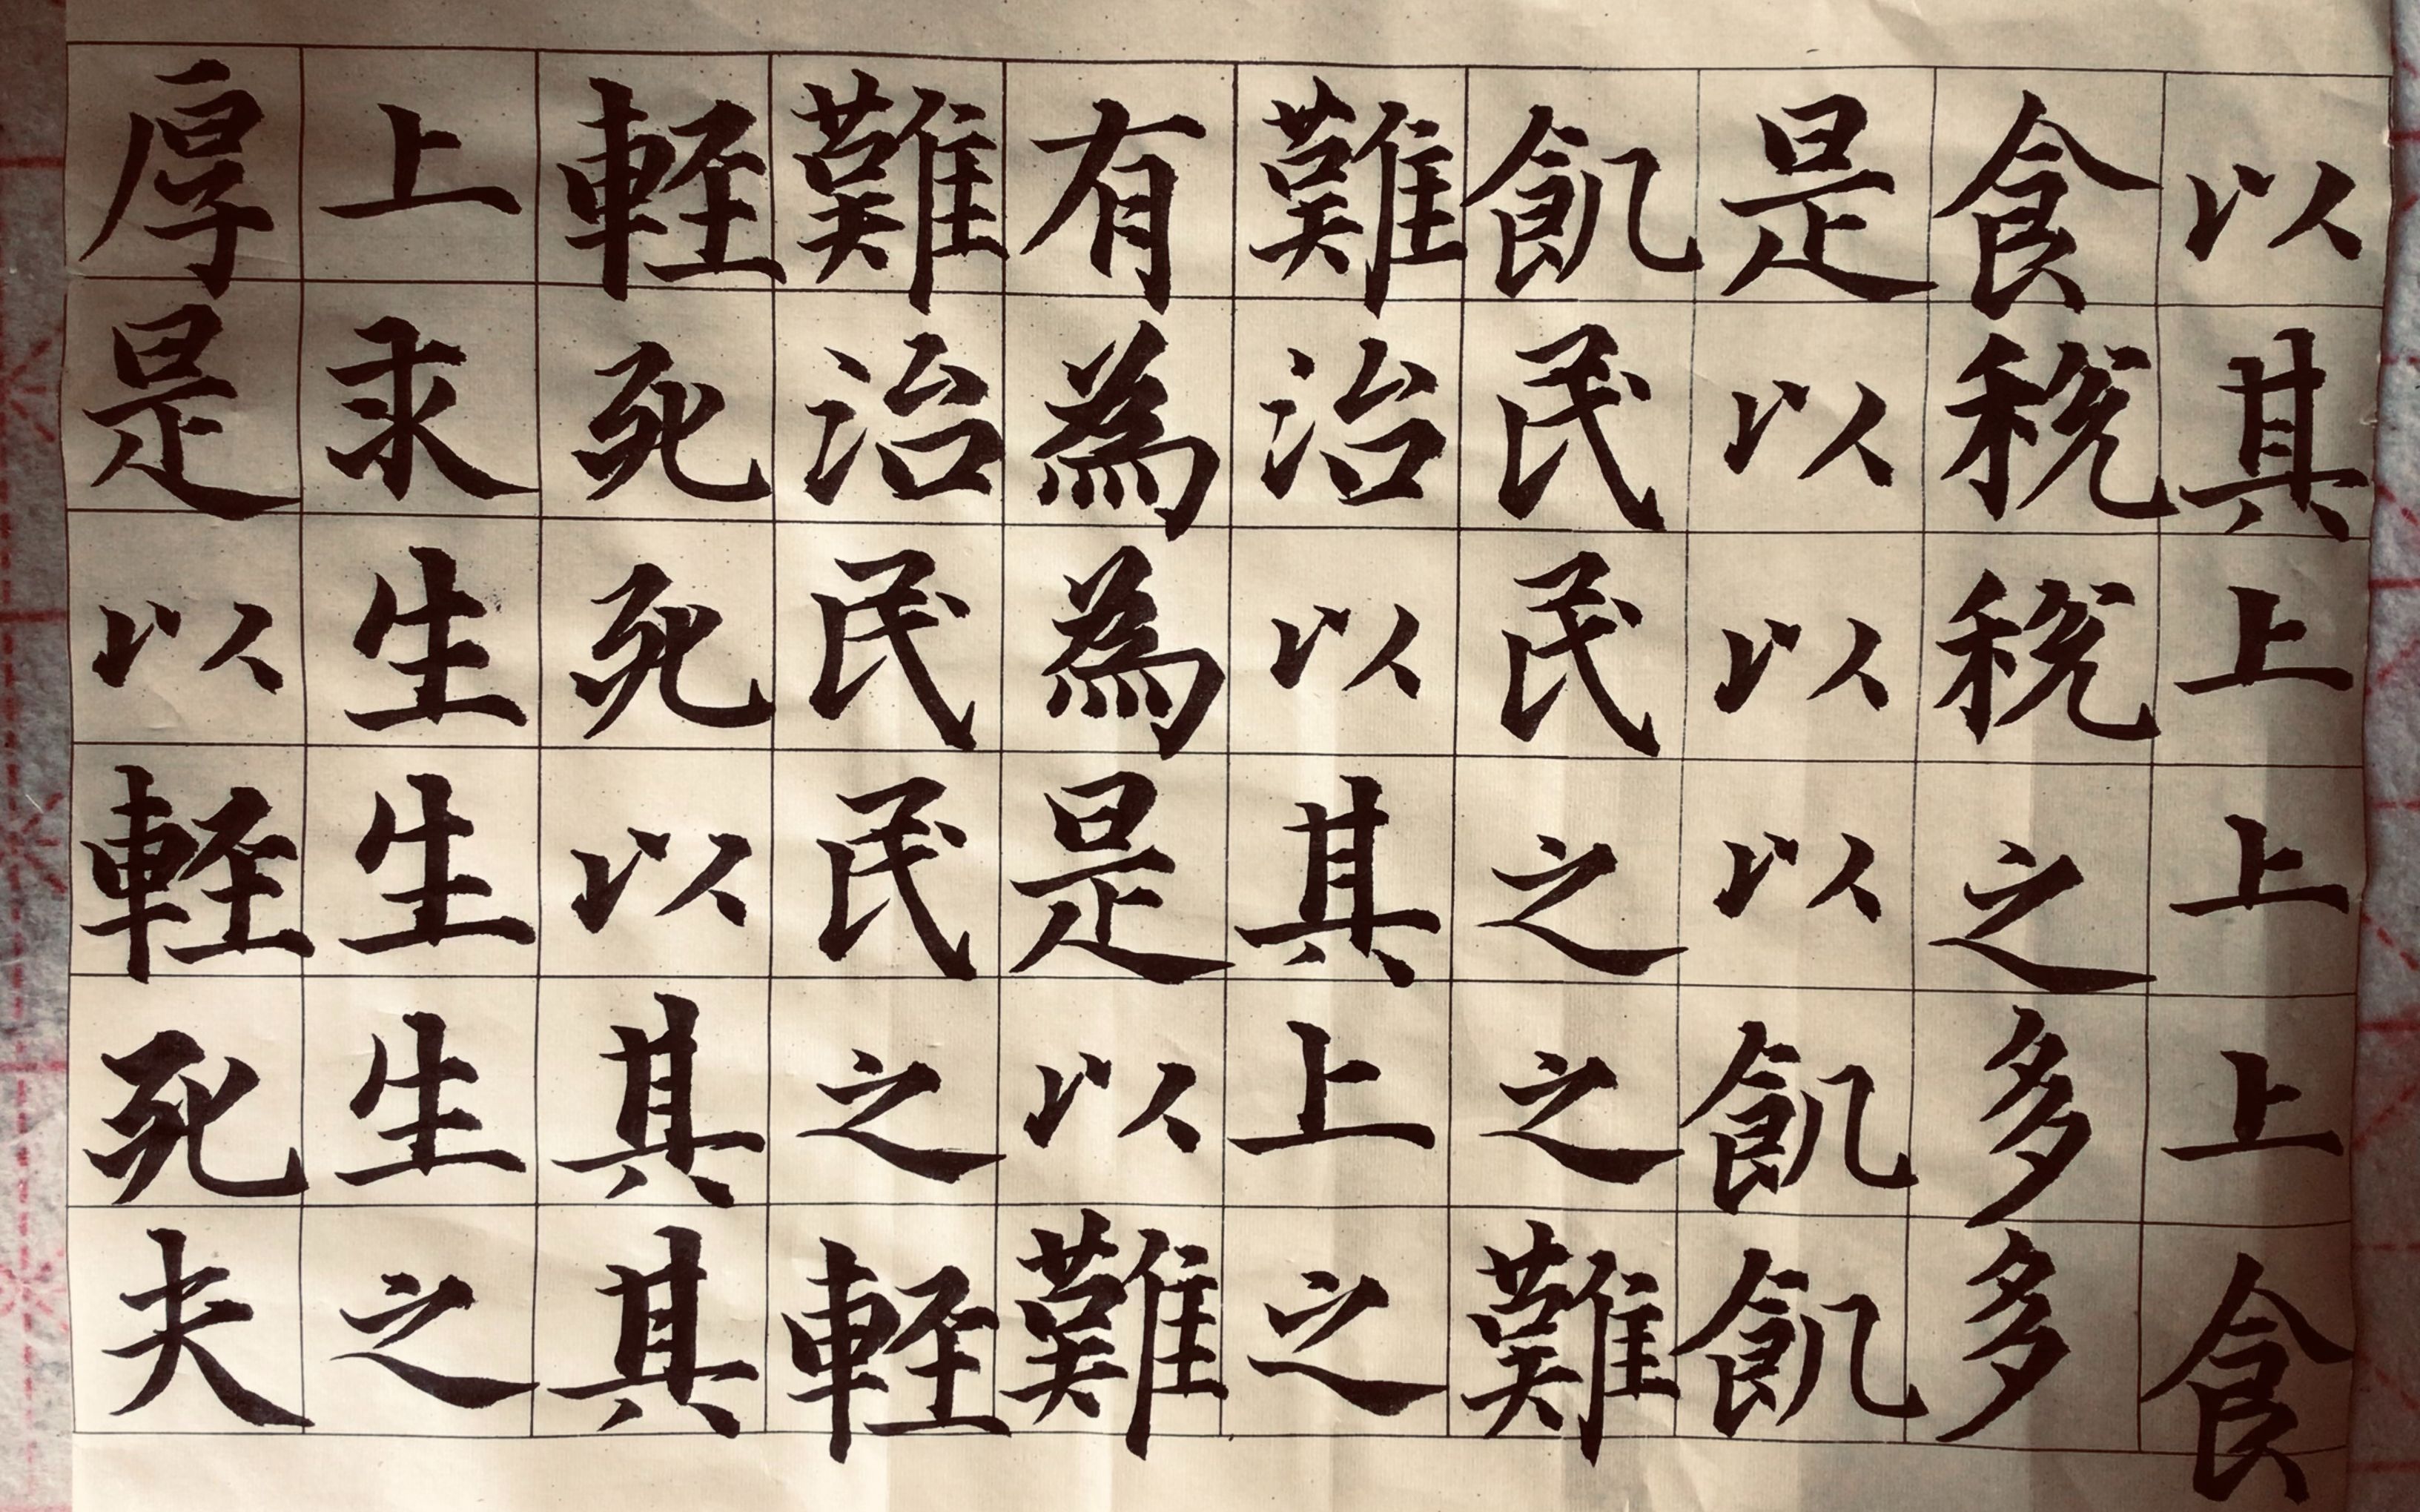 以其上上上食
食稅稅之多多
是以以以飢飢
飢民民之之難
難治以其上之
有為為是以難
難治民民之輕
輕死死以其其
上求生生生之
厚是以輕死夫